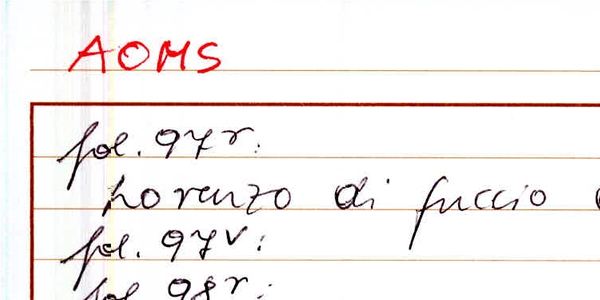 AOMS
fol. 97r:
Lorenzo di fuccio
fol. 97v:
fol. 98r: